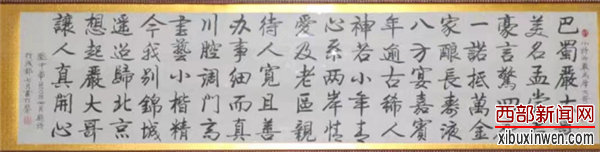 巴蜀嚴
美名孟尝
豪言驚四
一諾抵萬金
家酿長壽液
八方宴嘉賓
年逾古稀人
神若小年青
心系两岸情
愛及老區親
待人寬且善
办事细而真
川腔调門高
書藝小楷精
今我别錦城
遥遥歸北京
想起嚴大哥
讓人真開心
西部新闻网
www.xibuxinwen.cn